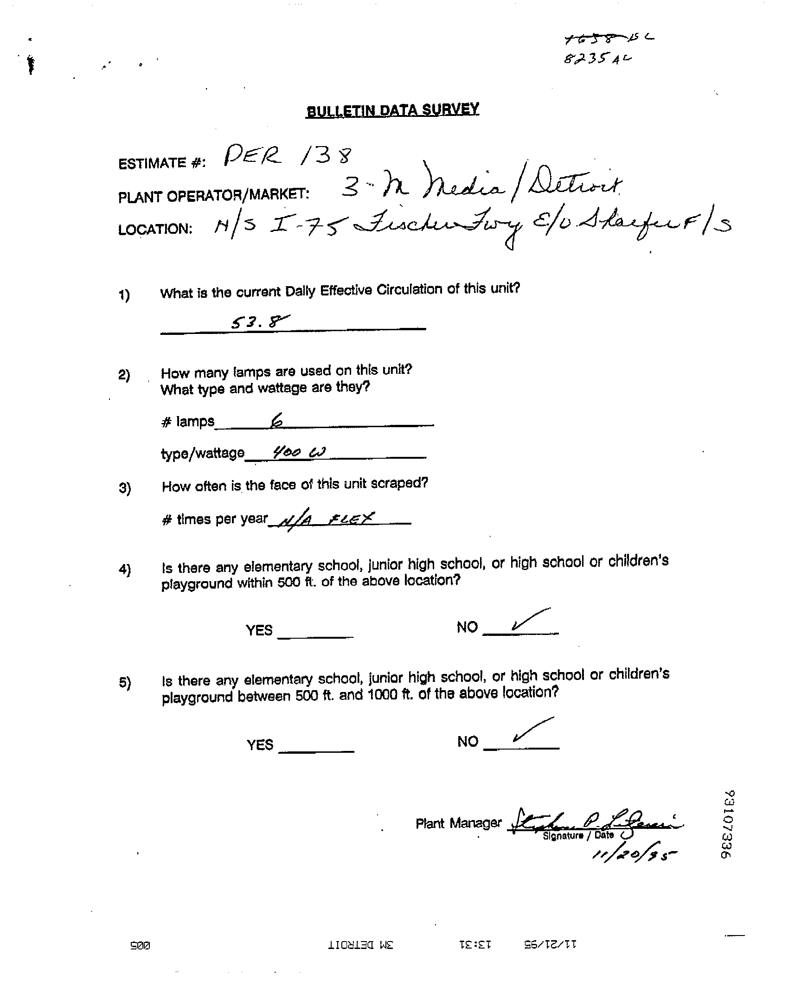 7658 BC
8235 AL
BULLETIN DATA SURVEY
ESTIMATE #: PER 138
PLANT OPERATOR/MARKET: 3-M Media/Detroit
LOCATION: N/S I-75 Fischer Fwy E/O Shaefer F/S
1) What is the current Daily Effective Circulation of this unit?
53.8
2) How many lamps are used on this unit?
What type and wattage are they?
# lamps 6
type/wattage 400 W
3) How often is the face of this unit scraped?
# times per year N/A FLEX
4) Is there any elementary school, junior high school, or high school or children's
playground within 500 ft. of the above location?
YES NO ✓
5) Is there any elementary school, junior high school, or high school or children's
playground between 500 ft. and 1000 ft. of the above location?
YES NO ✓
Plant Manager Stephen P.
Signature / Date
11/20/95
93107336
11/21/95 13:31 3M DETROIT 005